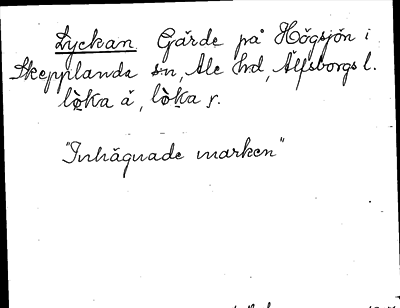 Lyckan Gärde på Högsjön i
Skepplanda sn, Ale hd, Älfsborgs l.
lò̱ka å, lò̱ka r.
"Inhägnade marken"